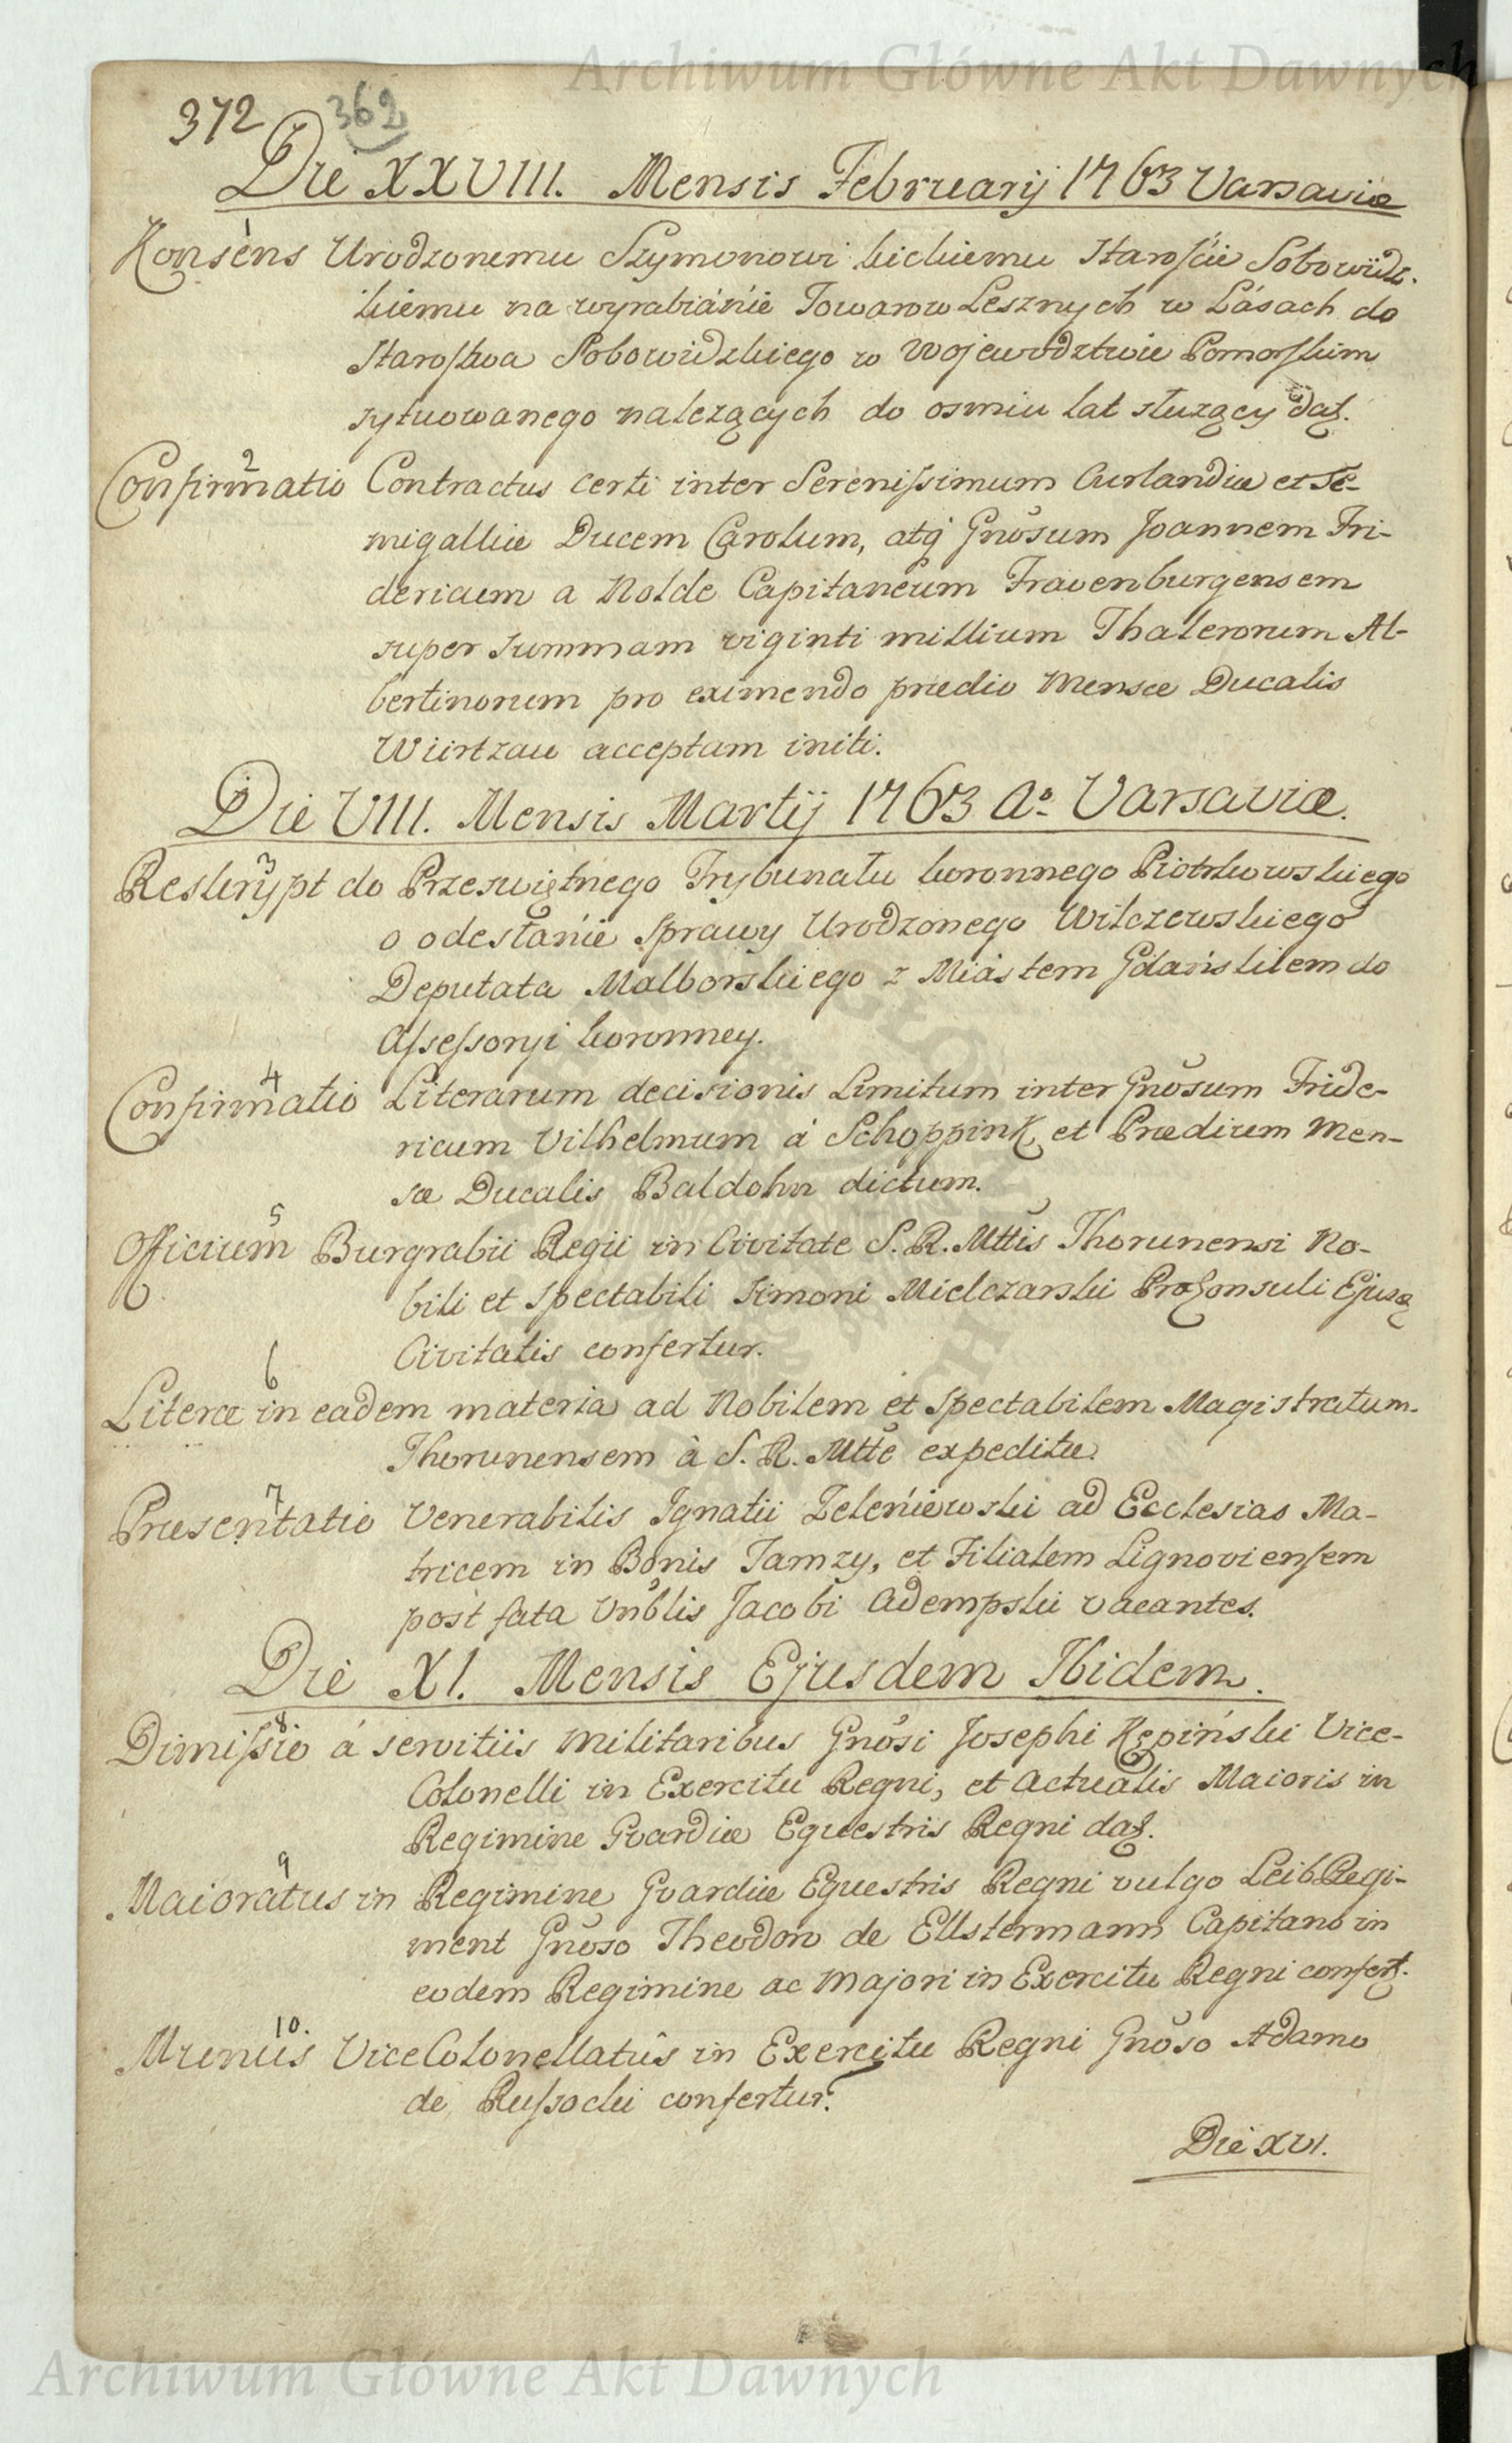 Archiwum Główne Akt Dawnych
372 362
Die XXVIII. Mensis Februarij 1763 Varsaviæ
1
Konsens Urodzonemu Szymonowi kickiemu Starośćie Sobowidz-
kiemu na wyrabiánié Towarow Lesznych w Lásach do
Starostwa Sobowidzkiego w Wojewodztwie Pomorskim
sytuowanego należących do osmiu lat służący daţ.
2
Confirmatio Contractus certi inter Serenissimum Curlandiæ et Se-
migalliæ Ducem Carolum, atq̃ Gnõsum Joannem Fri-
dericum a Nolde Capitaneum Fravenburgensem
super summam viginti millium Thalerorum Al-
bertinorum pro eximendo prædio Mensæ Ducalis
Würtzau acceptam initi.
Die VIII. Mensis Martij 1763 Aº Varsaviæ.
3
Reskrypt do Przeświętnego Trybunału koronnego Piotrkowskiego
o odesłanié Sprawy Urodzonego Wilczewskiego
Deputata Malborskiego z Miástem Gdańskiem do
Assessoryi koronney.
4
Confirmatio Literarum decisionis Limitum inter Gnõsum Fride-
ricum Vilhelmum á Schoppink et Prædium Men-
sæ Ducalis Baldohn dictum.
5
Officium Burgrabii Regii in Civitate S. R. Mttis Thorunensi No-
bili et Spectabili Simoni Mielczarski Proconsuli Ejusq̃
Civitatis confertur.
6
Literæ in eadem materia ad Nobilem et Spectabilem Magistratum
Thorunensem à S. R. Mtte expeditæ.
7
Præsentatio Venerabilis Ignatii Zeleniewski ad Ecclesias Ma-
tricem in Bonis Jamzy, et Filialem Lignoviensem
post fata Vnblis Jacobi Adempski vacantes.
Die XI. Mensis Ejusdem Ibidem.
8
Dimissio á servitiis Militaribus Gnõsi Josephi Kępiński Vice-
Colonelli in Exercitu Regni, et Actualis Maioris in
Regimine Gvardiæ Equestris Regni daţ.
9
Maioratus in Regimine Gvardiæ Equestris Regni vulgo Leib Regi-
ment Gnõso Theodoro de Ellstermann Capitano in
eodem Regimine ac Majori in Exercitu Regni conferţ.
10.
Munus ViceColonellatûs in Exercitu Regni Gnõso Adamo
de Russocki confertur.
Die XVI.
Archiwum Główne Akt Dawnych